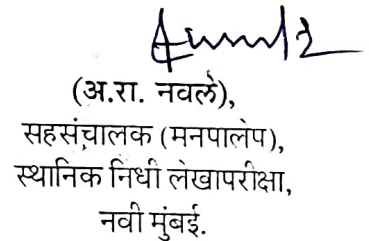 (अ.रा. नवले),
सहसंचालक (मनपालेप),
स्थानिक निधी लेखापरीक्षा,
नवी मुंबई.